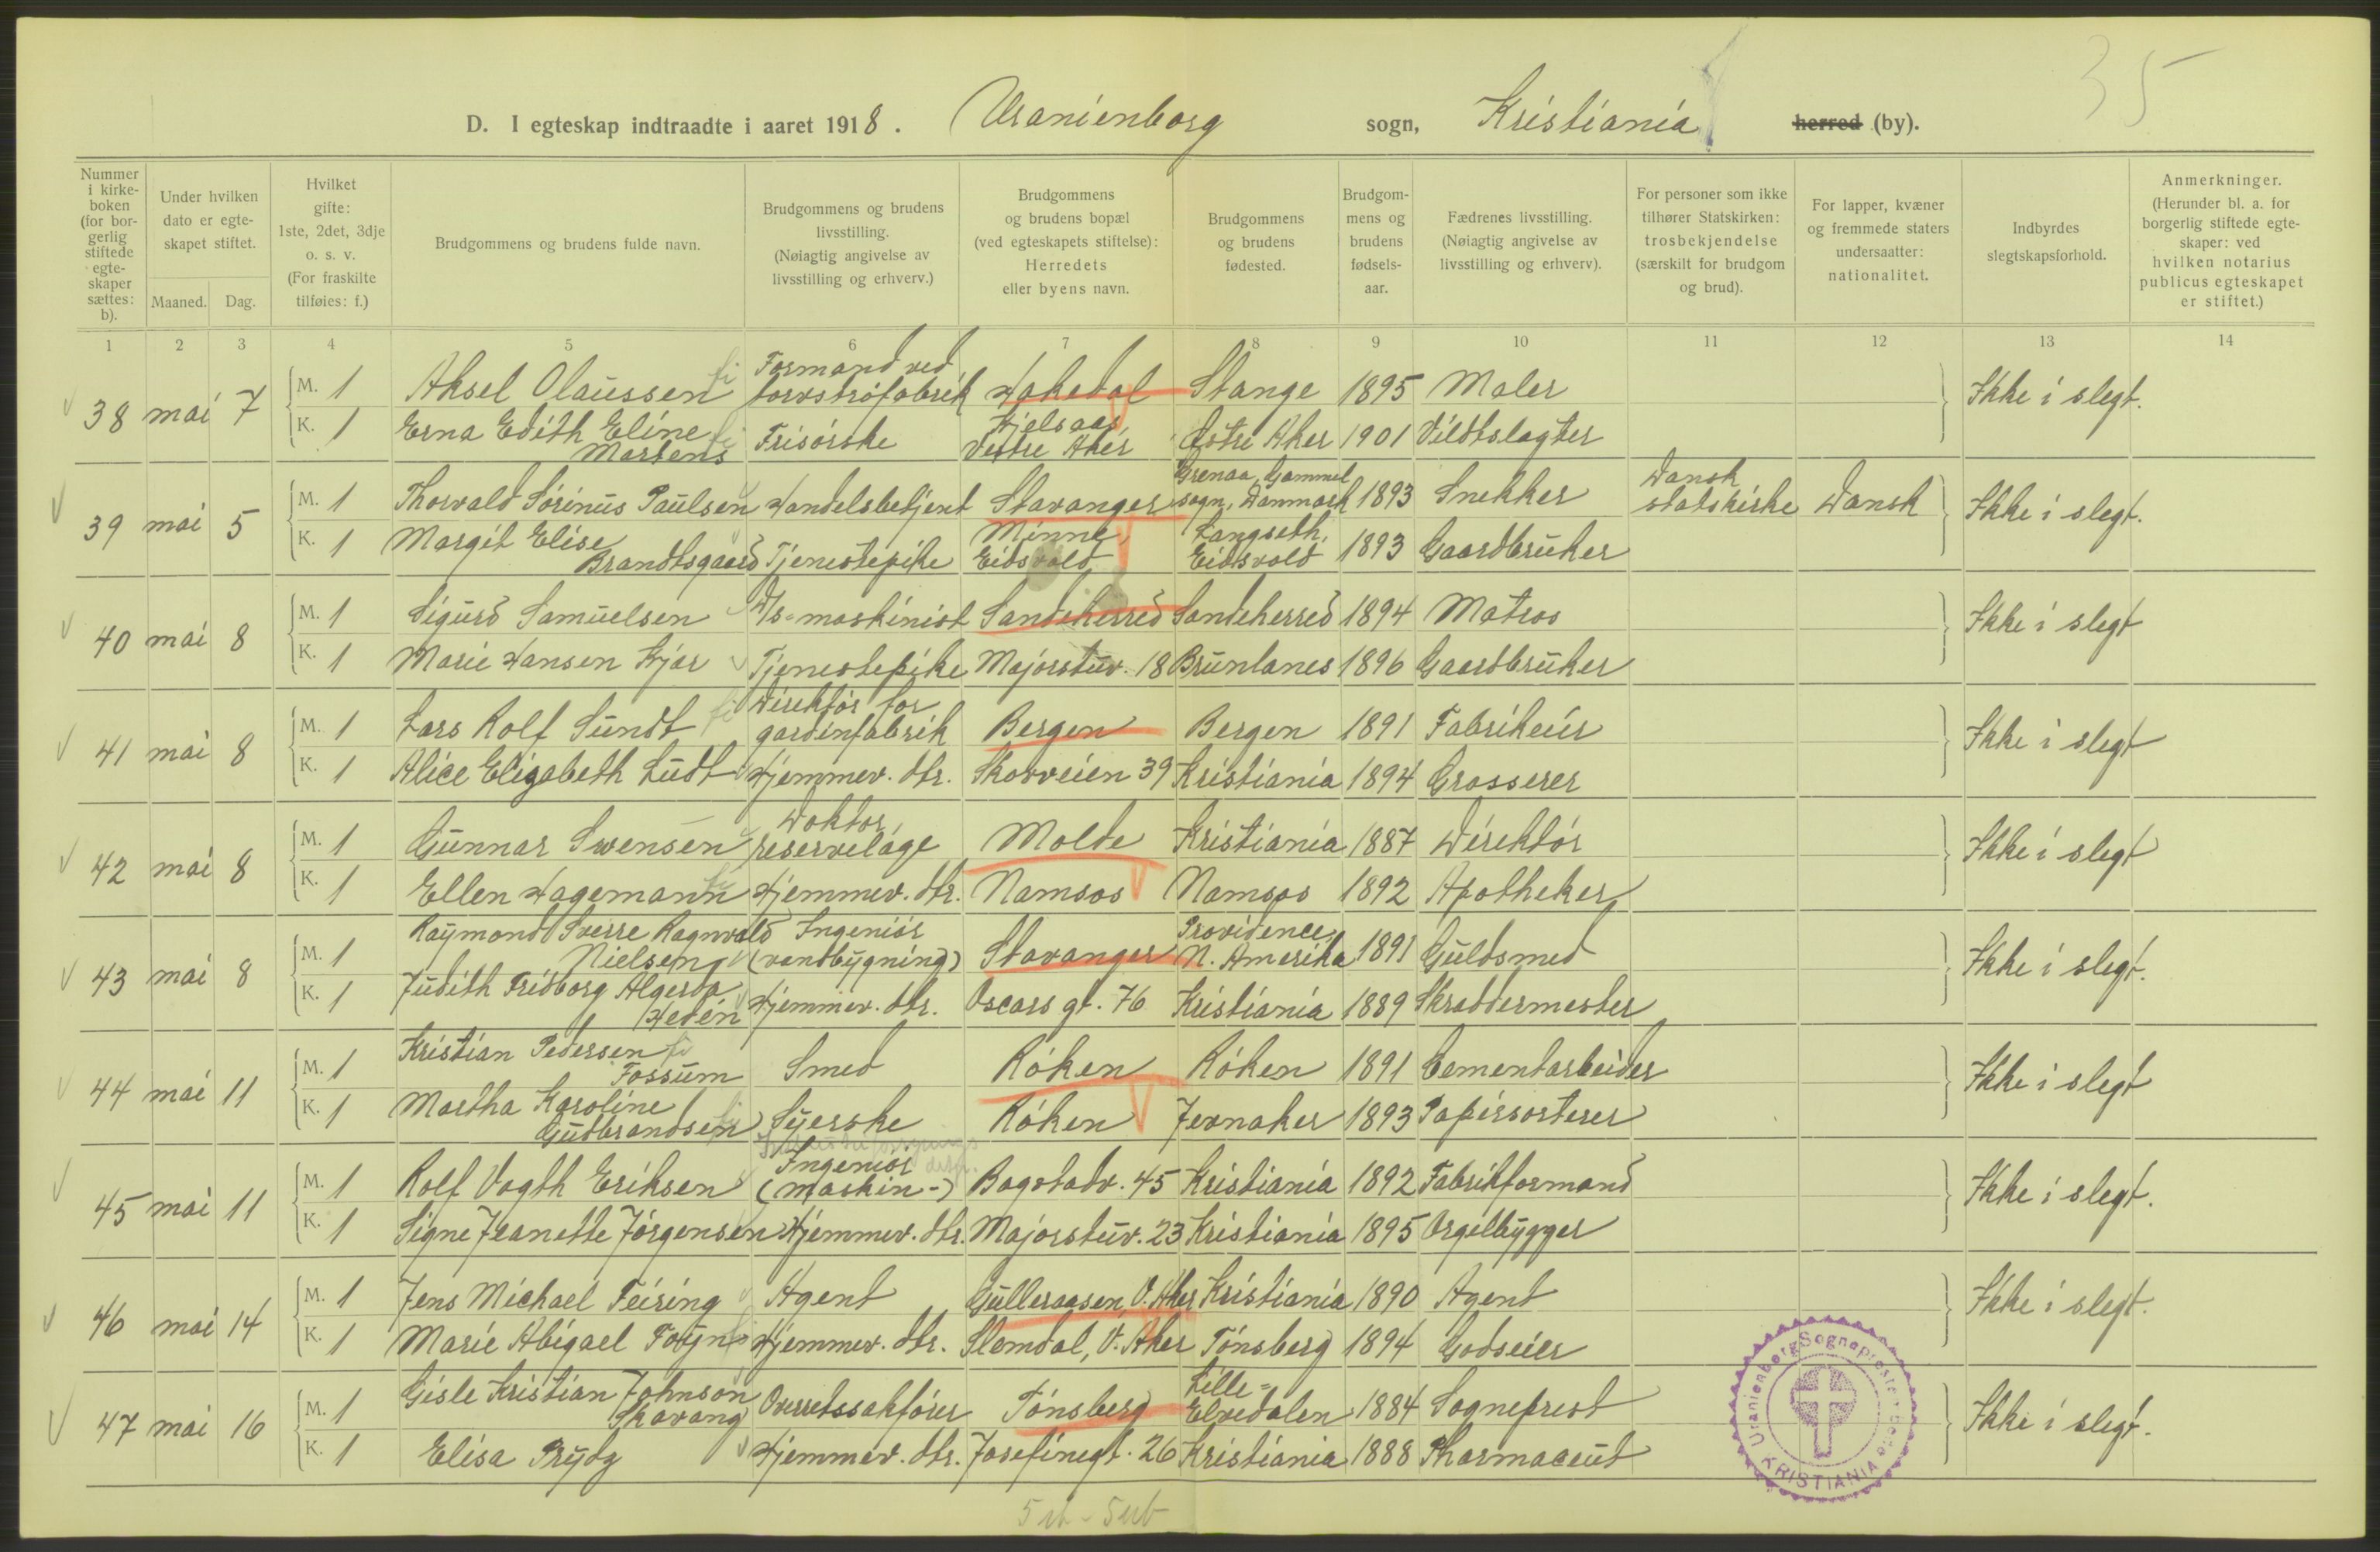 35
D. I egteskap indtraadte i aaret 1918. Uranienborg sogn, Kristiania herred (by).
Nummer i kirkeboken (for borgerlig stiftede egteskaper sættes: b).
Under hvilken dato er egteskapet stiftet.
Maaned. Dag.
Hvilket gifte: 1ste, 2det, 3dje o. s. v. (For fraskilte tilføies: f.)
Brudgommens og brudens fulde navn.
Brudgommens og brudens livsstilling. (Nøiagtig angivelse av livsstilling og erhverv.)
Brudgommens og brudens bopæl (ved egteskapets stiftelse): Herredets eller byens navn.
Brudgommens og brudens fødested.
Brudgommens og brudens fødselsaar.
Fædrenes livsstilling. (Nøiagtig angivelse av livsstilling og erhverv).
For personer som ikke tilhører Statskirken: trosbekjendelse (særskilt for brudgom og brud).
For lapper, kvæner og fremmede staters undersaatter: nationalitet.
Indbyrdes slegtskapsforhold.
Anmerkninger. (Herunder bl. a. for borgerlig stiftede egteskaper: ved hvilken notarius publicus egteskapet er stiftet.)
1 2 3 4 5 6 7 8 9 10 11 12 13 14
38 mai 7 M. 1 Aksel Olaussen Formand ved torvstrøfabrik Hakedal Stange 1895 Maler Ikke i slegt.
K. 1 Erna Edith Eline Martens Frisørske Kjelsaas Vestre Aker Østre Aker 1901 Vildtslagter
39 mai 5 M. 1 Thorvald Sørinus Paulsen Handelsbetjent Stavanger Grenaa, Gammel sogn, Danmark 1893 Snekker Dansk statskirke Dansk Ikke i slegt.
K. 1 Margit Elise Brandtsgaard Tjenestepike Minne, Eidsvold Langseth, Eidsvold 1893 Gaardbruker
40 mai 8 M. 1 Sigurd Samuelsen D/s-maskinist Sandeherred Sandeherred 1894 Matros Ikke i slegt
K. 1 Marie Hansen Kjær Tjenestepike Majorstuv. 18 Brunlanes 1896 Gaardbruker
41 mai 8 M. 1 Lars Rolf Sundt Direktør for gardinfabrik Bergen Bergen 1891 Fabrikeier Ikke i slegt
K. 1 Alice Elizabeth Ludt Hjemmev. dtr. Skovveien 39 Kristiania 1894 Grosserer
42 mai 8 M. 1 Gunnar Swensen Doktor, reservelæge Molde Kristiania 1887 Direktør Ikke i slegt
K. 1 Ellen Hagemann Hjemmev. dtr. Namsos Namsos 1892 Apotheker
43 mai 8 M. 1 Raymond Sverre Ragnvald Nielsen Ingeniør (vandbygning) Stavanger Providence, N. Amerika 1891 Guldsmed Ikke i slegt.
K. 1 Judith Fridborg Algerda Hedén Hjemmev. dtr. Oscars gt. 76 Kristiania 1889 Skræddermester
44 mai 11 M. 1 Kristian Pedersen Fossum Smed Røken Røken 1891 Cementarbeider Ikke i slegt
K. 1 Martha Karoline Gudbrandsen Syerske Røken Jevnaker 1893 Papirsorterer
45 mai 11 M. 1 Rolf Vogth Eriksen Ingeniør (maskin-) Bogstadv. 45 Kristiania 1892 Fabrikformand Ikke i slegt.
K. 1 Signe Jeanette Jørgensen Hjemmev. dtr. Majorstuv. 23 Kristiania 1895 Orgelbygger
46 mai 14 M. 1 Jens Michael Feiring Agent Gulleraasen, V. Aker Kristiania 1890 Agent Ikke i slegt.
K. 1 Marie Abigael Foyn Hjemmev. dtr. Slemdal, V. Aker Tønsberg 1894 Godseier
47 mai 16 M. 1 Gisle Kristian Johnson Skavang Overretssakfører Tønsberg Lille-Elvedalen 1884 Sogneprest Ikke i slegt.
K. 1 Elisa Prydz Hjemmev. dtr. Josefinegt. 26 Kristiania 1888 Pharmaceut
Uranienborg Sogneprestembede KRISTIANIA